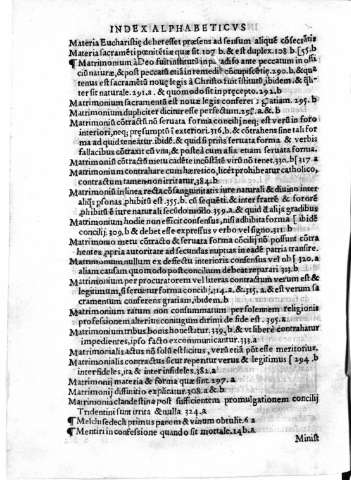 INDEX ALPHABETICVS
Materia Eucharistiæ deberesset præsens ad sensum aliquē cōsecrātis
Materia sacramēti pœnitētiæ quæ sit 107. b & est duplex. 108. b [55. b
¶ Matrimonium à Deo fuit institutū in paradiso ante peccatum in offi
ciū naturæ, & post peccatū etiā in remediū cōcupiscētiæ. 290. b. & qua
tenus est sacramētū nouę legis à Christo fuit institutū ibidem. & qua
ter sit naturale. 291. a. & quomodo sit in precepto. 292. b
Matrimonium sacramentū est nouæ legis conferēs gratiam. 295. b
Matrimonium dupliciter dicitur esse perfectum. 298. a. & b
Matrimoniū cōtractū nō seruata forma concilij neq; est verū in foro
interiori, neq; præsumptū exteriori. 316. b. & cōtrahens sine tali for
ma ad quid teneatur. ibidē. & quid si prius seruata forma & verbis
fallacibus cōtraxit cū vna, & postea cum alia etiam seruata forma.
Matrimoniū cōtractū metu cadēte in cōstātē virū nō tenet. 330. b [317. a
Matrimonium contrahere cum hæretico, licet prohibeatur catholico,
contractum tamen non irritatur, 384. b
Matrimoniū in linea recta cōsanguinitatis iure naturali & diuino inter
aliq̄s psonas, phibitū est. 355. b. cū sequēti. & inter fratrē & sororē
, phibitū ē iure naturali secūdo modo 359. a. & quid ī alijs gradibus
Matrimonium hodie non efficit consensus, nisi adhibita forma [ ibidē
concilij. 309. b & debet esse expressus verbo vel signo. 311. b
Matrimonio metu cōtracto & seruata forma concilij nō possunt cōtra
hentes, ppria autoritate ad secundas nuptias in eadē patria transire.
Matrimonium nullum ex defectu interioris consensus vel ob [ 320. a
aliam causam quomodo post concilium debeat reparari 323. b
Matrimonium per procuratorem vel literas contractum verum est &
legitimum, si seruetur forma concilij, 314. a. & 315. a. & est verum sa
cramentum conferens gratiam, ibidem. b
Matrimonium ratum non consummatum per solemnem religionis
professionem alterius coniugum dirimi de fide est. 395. a
Matrimonium tribus bonis honestatur. 339. b. & vt libere contrahatur
impedientes, ipso facto excommunicatur. 333. b
Matrimonialis actus nō solū est licitus, verū etiā pōt esse meritorius.
Matrimonialis contractus sicut reperitur verus & legitimus [ 294. b
inter fideles, ita & inter infideles. 382. a
Matrimonij materia & forma quæ sint 297. a
Matrimonij diffinitio explicatur. 308. a & b
Matrimonia clandestina post sufficientem promulgationem concilij
Tridentini sunt irrita & nulla. 324. a
¶ Melchisedech primus panem & vinum obtulit. 6. a
¶ Mentiri in confessione quando sit mortale. 14. b. a
Minist